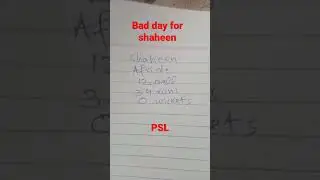 Bad day for
shaheen
Shaheen
Afride
12 ball
34 runs
0 wickets
PSL